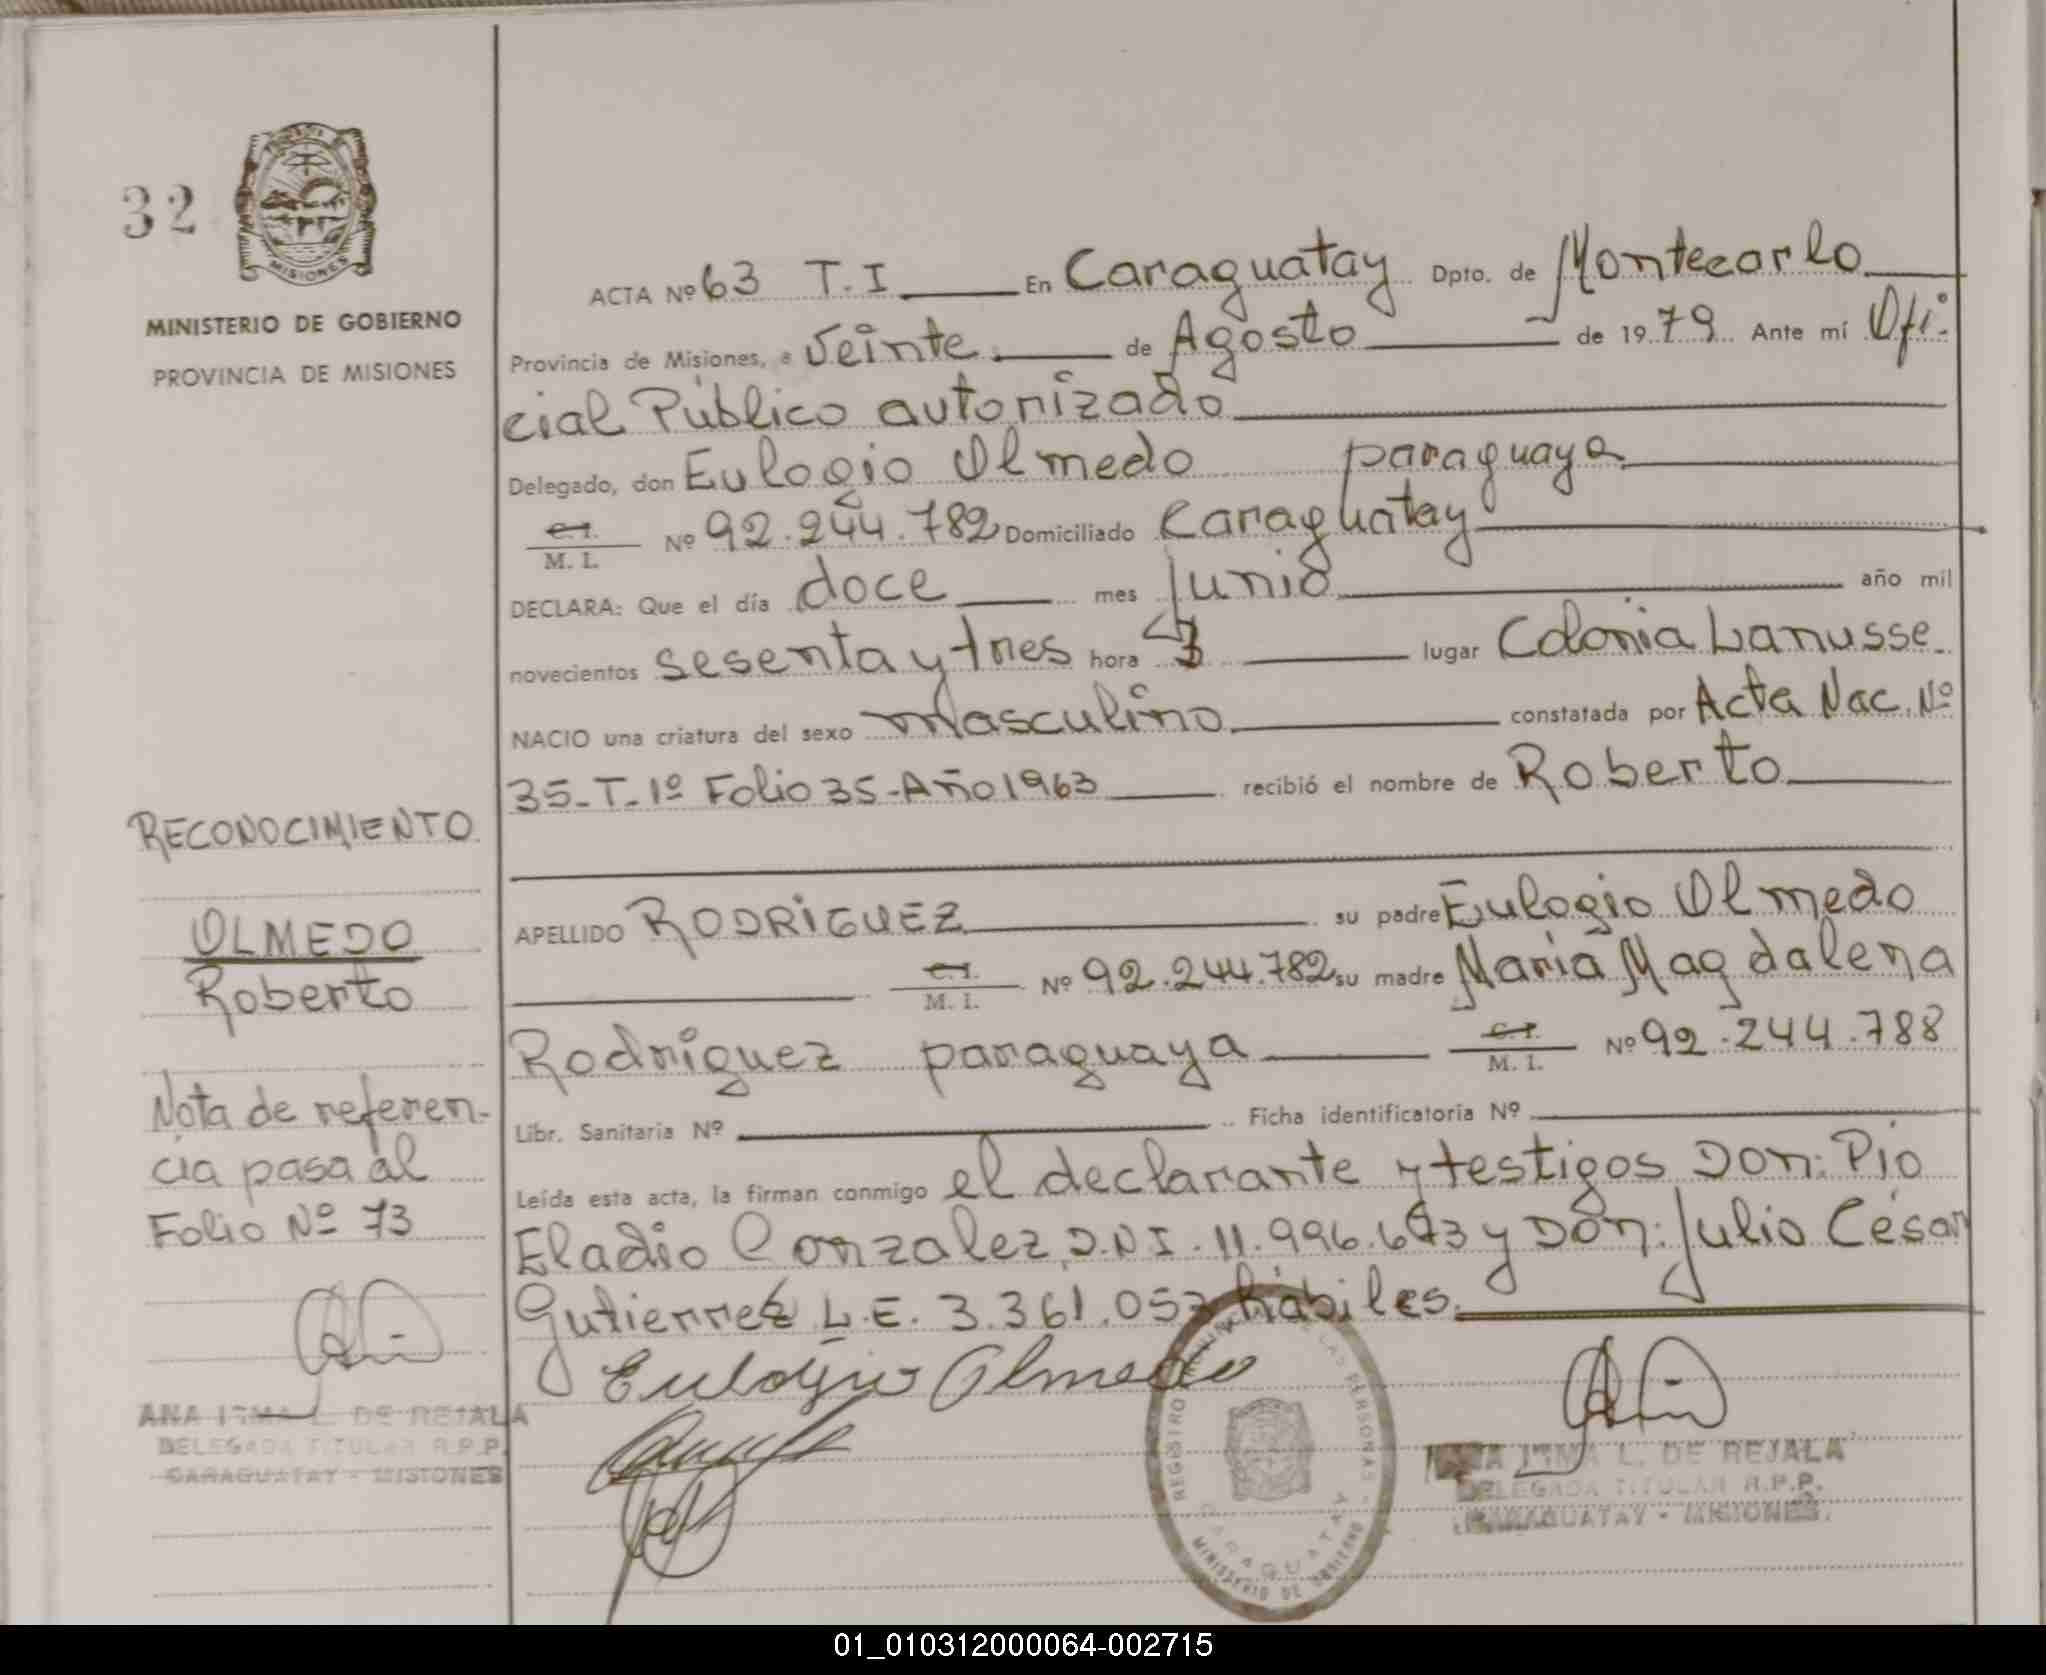 32
MISIONES
MINISTERIO DE GOBIERNO
PROVINCIA DE MISIONES
RECONOCIMIENTO
OLMEDO
Roberto
Nota de referen-
cia pasa al
Folio Nº 73
ANA IRMA L. DE REJALA
DELEGADA TITULAR R.P.P.
CARAGUATAY - MISIONES
ACTA Nº 63 T.I En Caraguatay Dpto. de Montecarlo
Provincia de Misiones, a Veinte de Agosto de 1979 Ante mí Ofi-
cial Público autorizado
Delegado, don Eulogio Olmedo paraguayo
C.I. / M. I. Nº 92.244.782 Domiciliado Caraguatay
DECLARA: Que el día doce mes Junio año mil
novecientos sesenta y tres hora 3 lugar Colonia Lanusse
NACIO una criatura del sexo masculino constatada por Acta Nac. Nº
35-T-1º Folio 35-Año 1963 recibió el nombre de Roberto
APELLIDO RODRIGUEZ su padre Eulogio Olmedo
C.I. / M. I. Nº 92.244.782 su madre Maria Magdalena
Rodriguez paraguaya C.I. / M. I. Nº 92.244.788
Libr. Sanitaria Nº Ficha identificatoria Nº
Leída esta acta, la firman conmigo el declarante y testigos Don: Pio
Eladio Gonzalez D.N.I. 11.996.673 y Don: Julio César
Gutierrez L.E. 3.361.053 hábiles.
Eulogio Olmedo
REGISTRO PROVINCIAL DE LAS PERSONAS
CARAGUATAY
MINISTERIO DE GOBIERNO
ANA IRMA L. DE REJALA
DELEGADA TITULAR R.P.P.
CARAGUATAY - MISIONES.
01_010312000064-002715